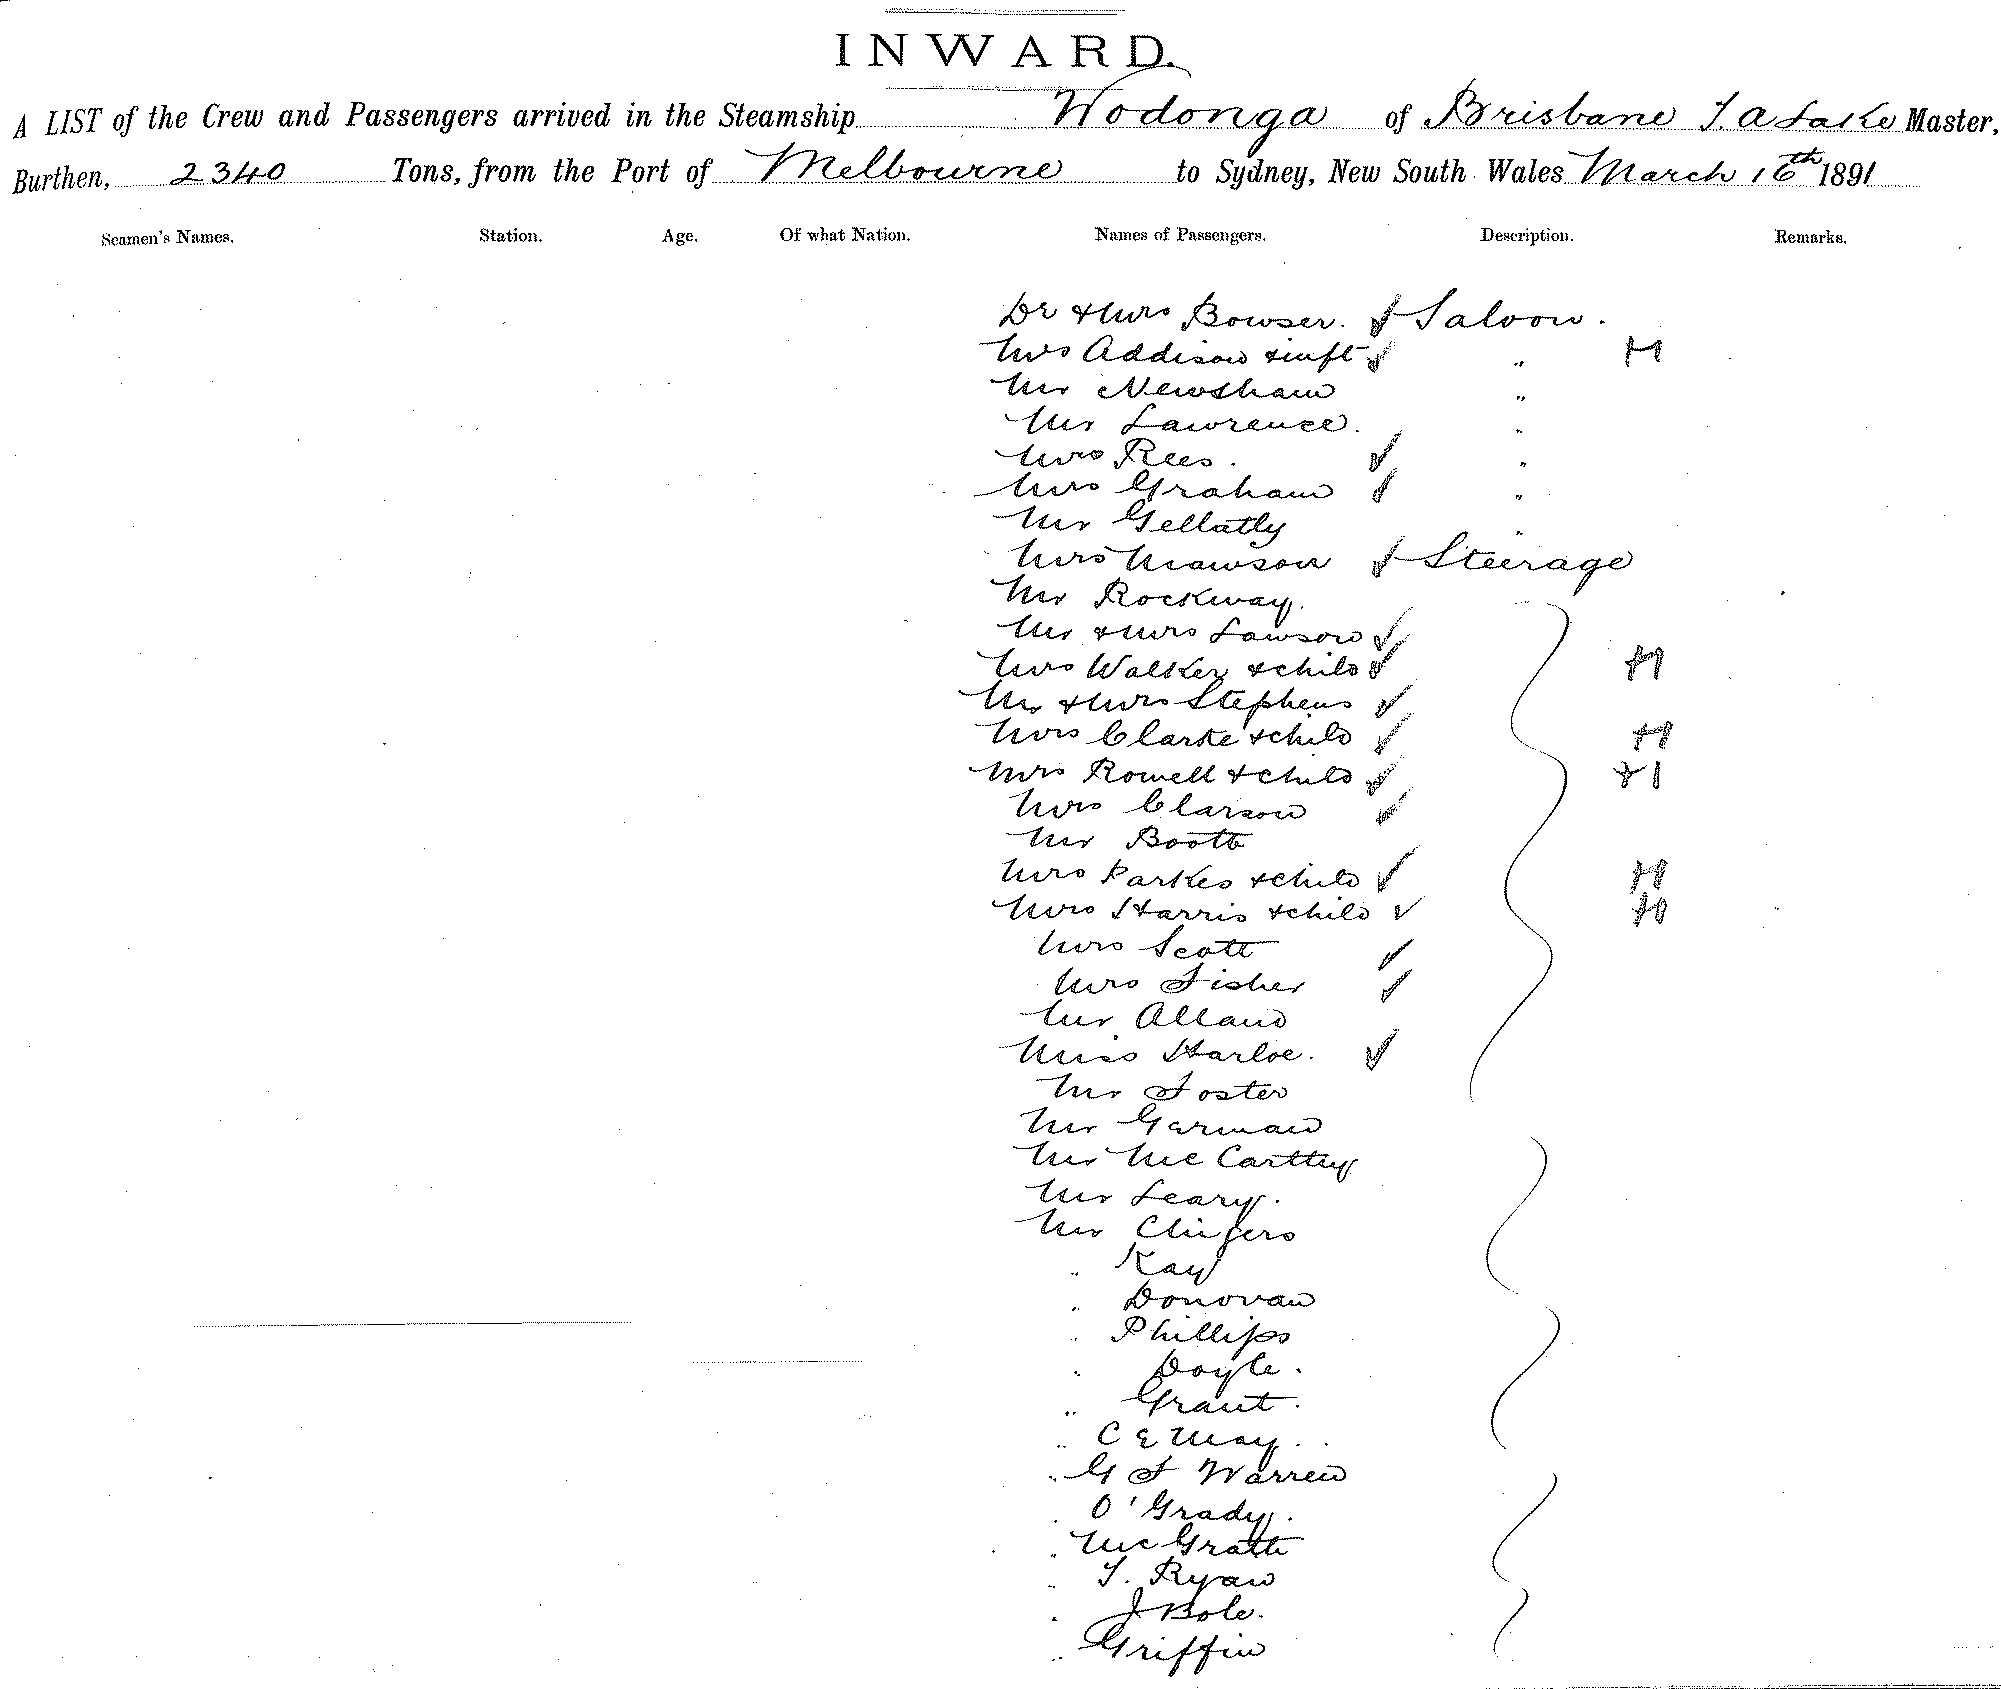 INWARD.
A LIST of the Crew and Passengers arrived in the Steamship Wodonga of Brisbane J. A Lake Master,
Burthen, 2340 Tons, from the Port of Melbourne to Sydney, New South Wales March 16th 1891
Seamen's Names. Station. Age. Of what Nation. Names of Passengers. Description. Remarks.
Dr & Mrs Bowser. Saloon.
Mrs Addison & inft "
Mr Newsham "
Mr Lawrence. "
Mrs Rees. "
Mrs Graham "
Mr Gellatly "
Mrs Mawson Steerage
Mr Rockway.
Mr & Mrs Lawson
Mrs Walker & child
Mr & Mrs Stephens
Mrs Clarke & child
Mrs Rowell & child +1
Mrs Clarson
Mr Booth
Mrs Parkes & child
Mrs Harris & child
Mrs Scott
Mrs Fisher
Mr Alland
Miss Harloe.
Mr Foster
Mr German
Mr McCarthy
Mr Leary.
Mr
" Kay
" Donovan
" Phillips
" Doyle.
" Grant.
" C E May.
" G F Warren
" O'Grady.
" McGrath
" T. Ryan
" J Bole.
" Griffin